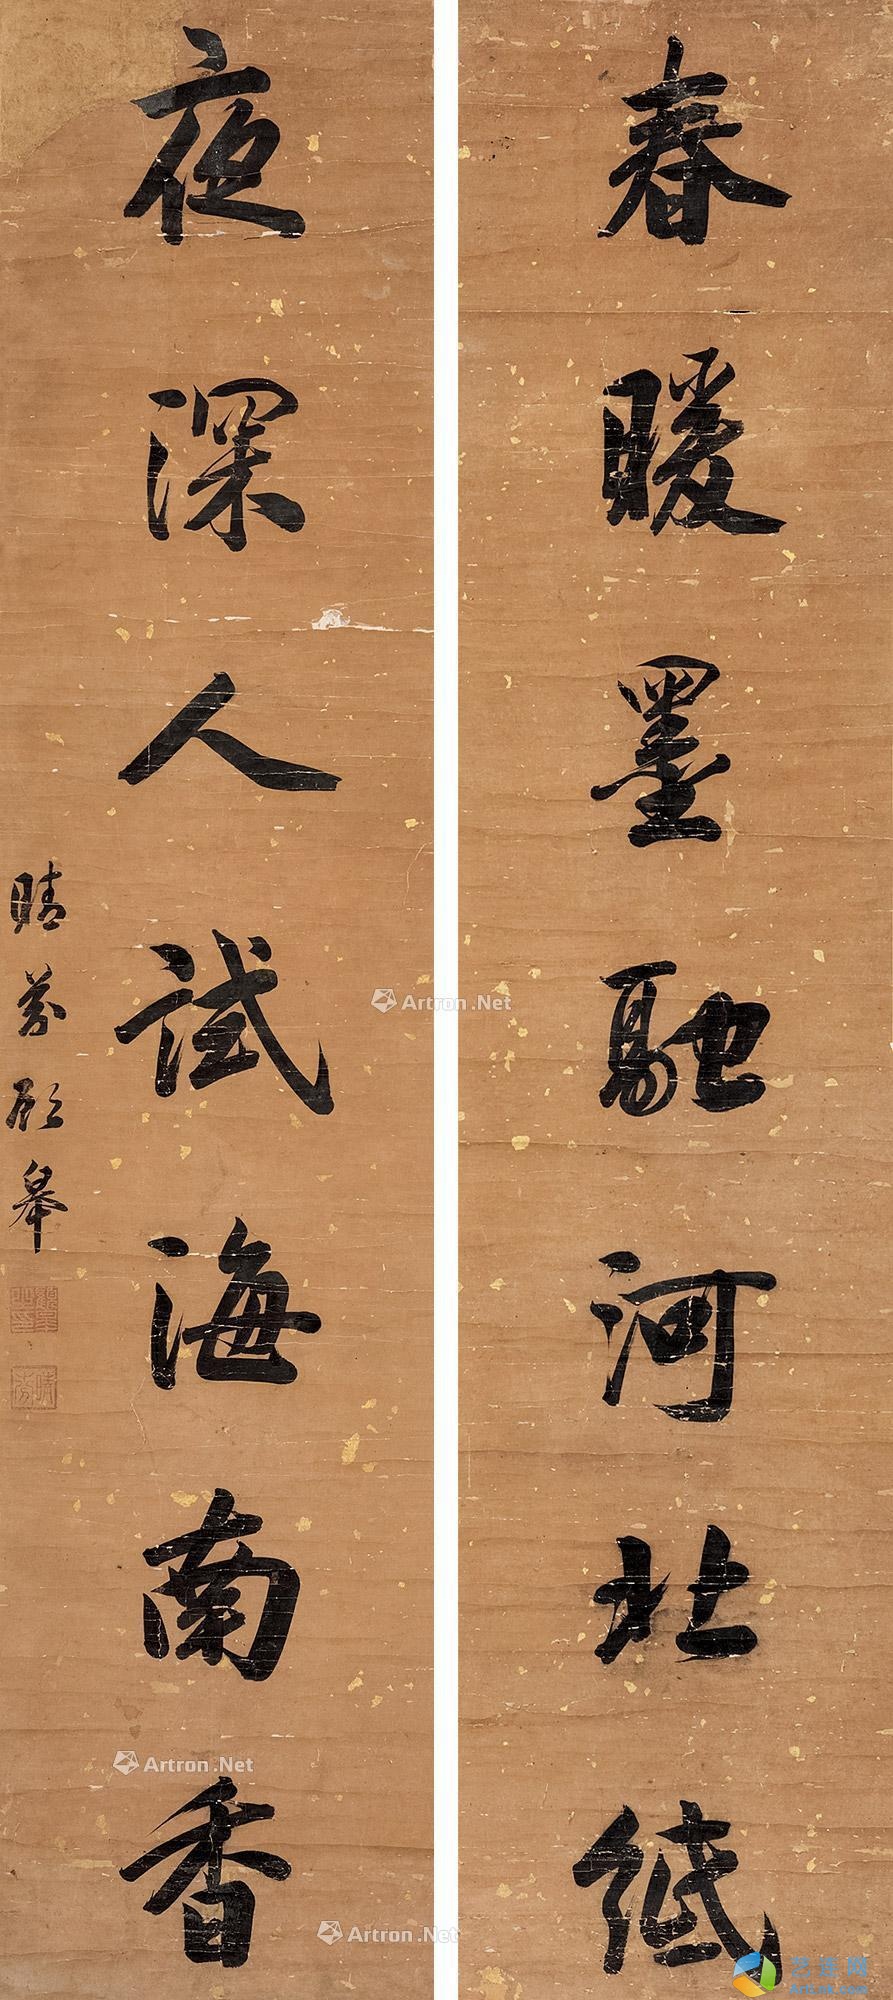 春暖墨馳河北紙
夜深人試海南香
晴芬顧皋
Artron.Net
Artron.Net
Artron.Net